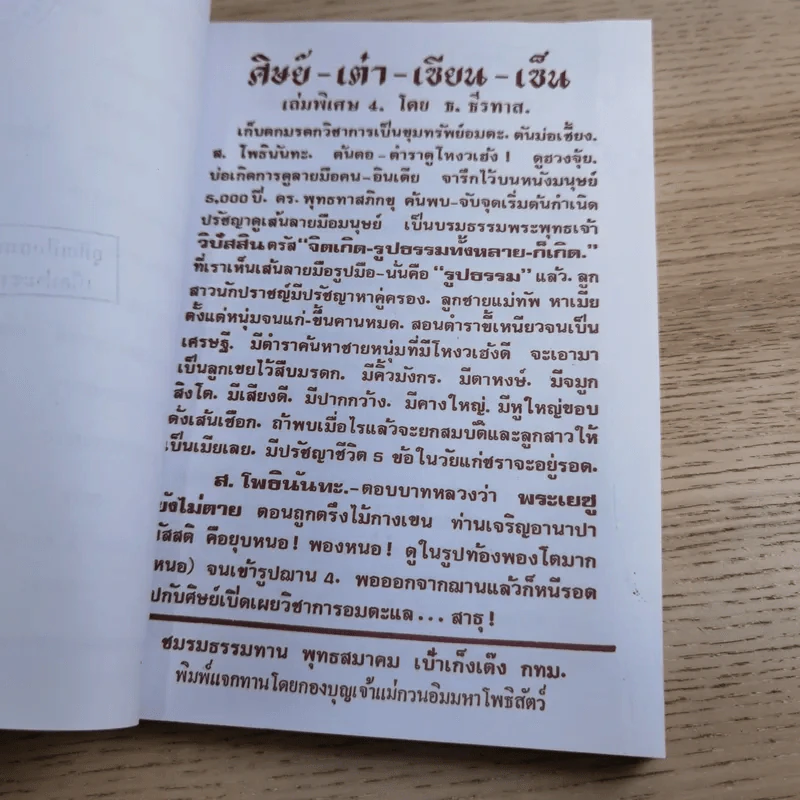 ศิษย์-เต๋า-เซียน-เซ็น
เล่มพิเศษ ๔. โดย ธ. ธีรทาส.
เก็บตกมรดกวิชาการเป็นขุมทรัพย์อมตะ. ตันม่อเซี้ยง.
ส. โพธินันทะ. ต้นตอ-ตำราดูโหงวเฮ้ง ! ดูฮวงจุ้ย.
บ่อเกิดการดูลายมือคน-อินเดีย จารึกไว้บนหนังมนุษย์
๕,๐๐๐ ปี. ดร. พุทธทาสภิกขุ ค้นพบ-จับจุดเริ่มต้นกำเนิด
ปรัชญาดูเส้นลายมือมนุษย์ เป็นบรมธรรมพระพุทธเจ้า
วิปัสสิน ตรัส "จิตเกิด-รูปธรรมทั้งหลาย-ก็เกิด."
ที่เราเห็นเส้นลายมือรูปมือ-นั่นคือ "รูปธรรม" แล้ว. ลูก
สาวนักปราชญ์มีปรัชญาหาคู่ครอง. ลูกชายแม่ทัพ หาเมีย
ตั้งแต่หนุ่มจนแก่-ขึ้นคานหมด. สอนตำราขี้เหนียวจนเป็น
เศรษฐี. มีตำราค้นหาชายหนุ่มที่มีโหงวเฮ้งดี จะเอามา
เป็นลูกเขยไว้สืบมรดก. มีคิ้วมังกร. มีตาหงษ์. มีจมูก
สิงโต. มีเสียงดี. มีปากกว้าง. มีคางใหญ่. มีหูใหญ่ขอบ
ดั้งเส้นเชือก. ถ้าพบเมื่อไรแล้วจะยกสมบัติและลูกสาวให้
เป็นเมียเลย. มีปรัชญาชีวิต ๕ ข้อในวัยแก่ชราจะอยู่รอด.
ส. โพธินันทะ.-ตอบบาทหลวงว่า พระเยซู
ยังไม่ตาย ตอนถูกตรึงไม้กางเขน ท่านเจริญอานาปา
นัสสติ คือยุบหนอ! พองหนอ! ดูในรูปท้องพองโตมาก
หนอ) จนเข้ารูปฌาน ๔. พอออกจากฌานแล้วก็หนีรอด
ปกับศิษย์เปิดเผยวิชาการอมตะแล... สาธุ!
ชมรมธรรมทาน พุทธสมาคม เป้าเก็งเต๊ง กทม.
พิมพ์แจกทานโดยกองบุญเจ้าแม่กวนอิมมหาโพธิสัตว์